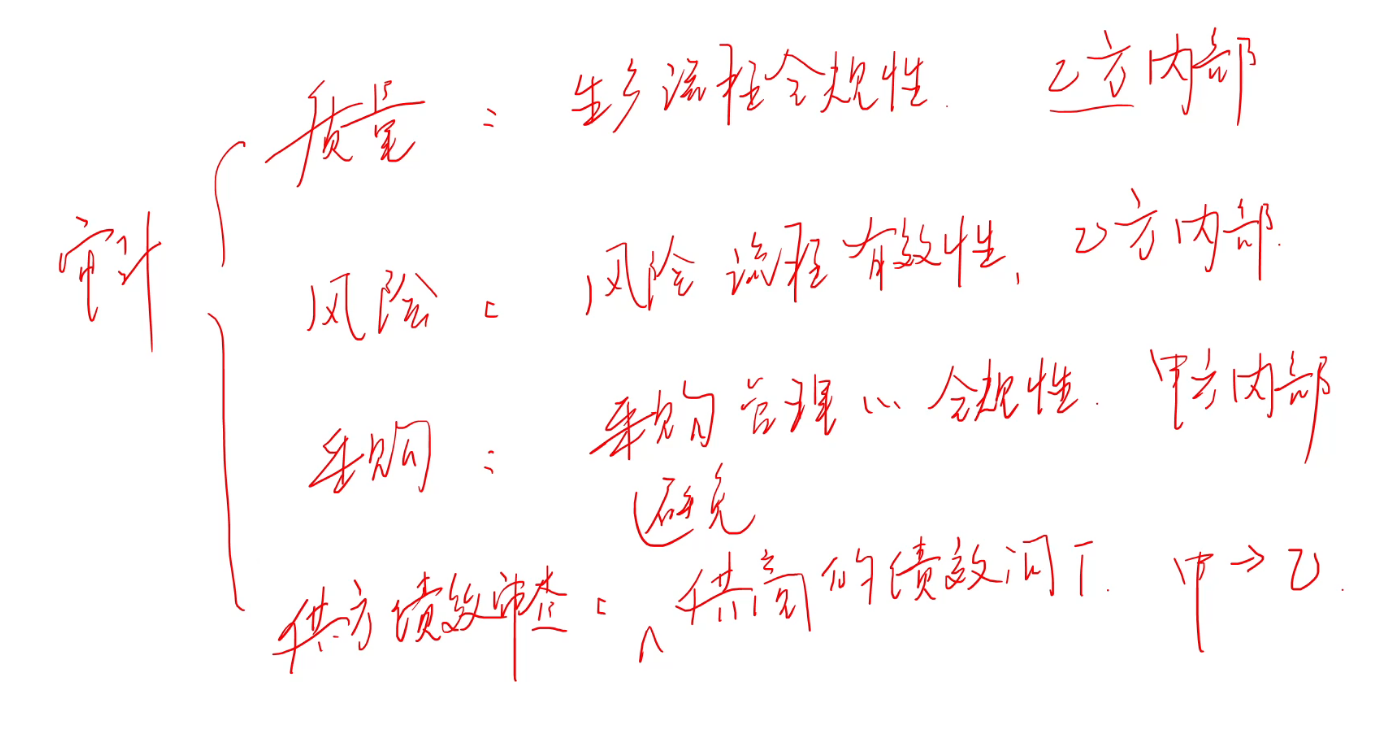 审计
质量： 生产流程合规性. 乙方内部
风险： 风险流程有效性, 乙方内部.
采购： 采购管理 合规性. 甲方内部
避免
供方绩效审查： 供商的绩效 甲→乙.